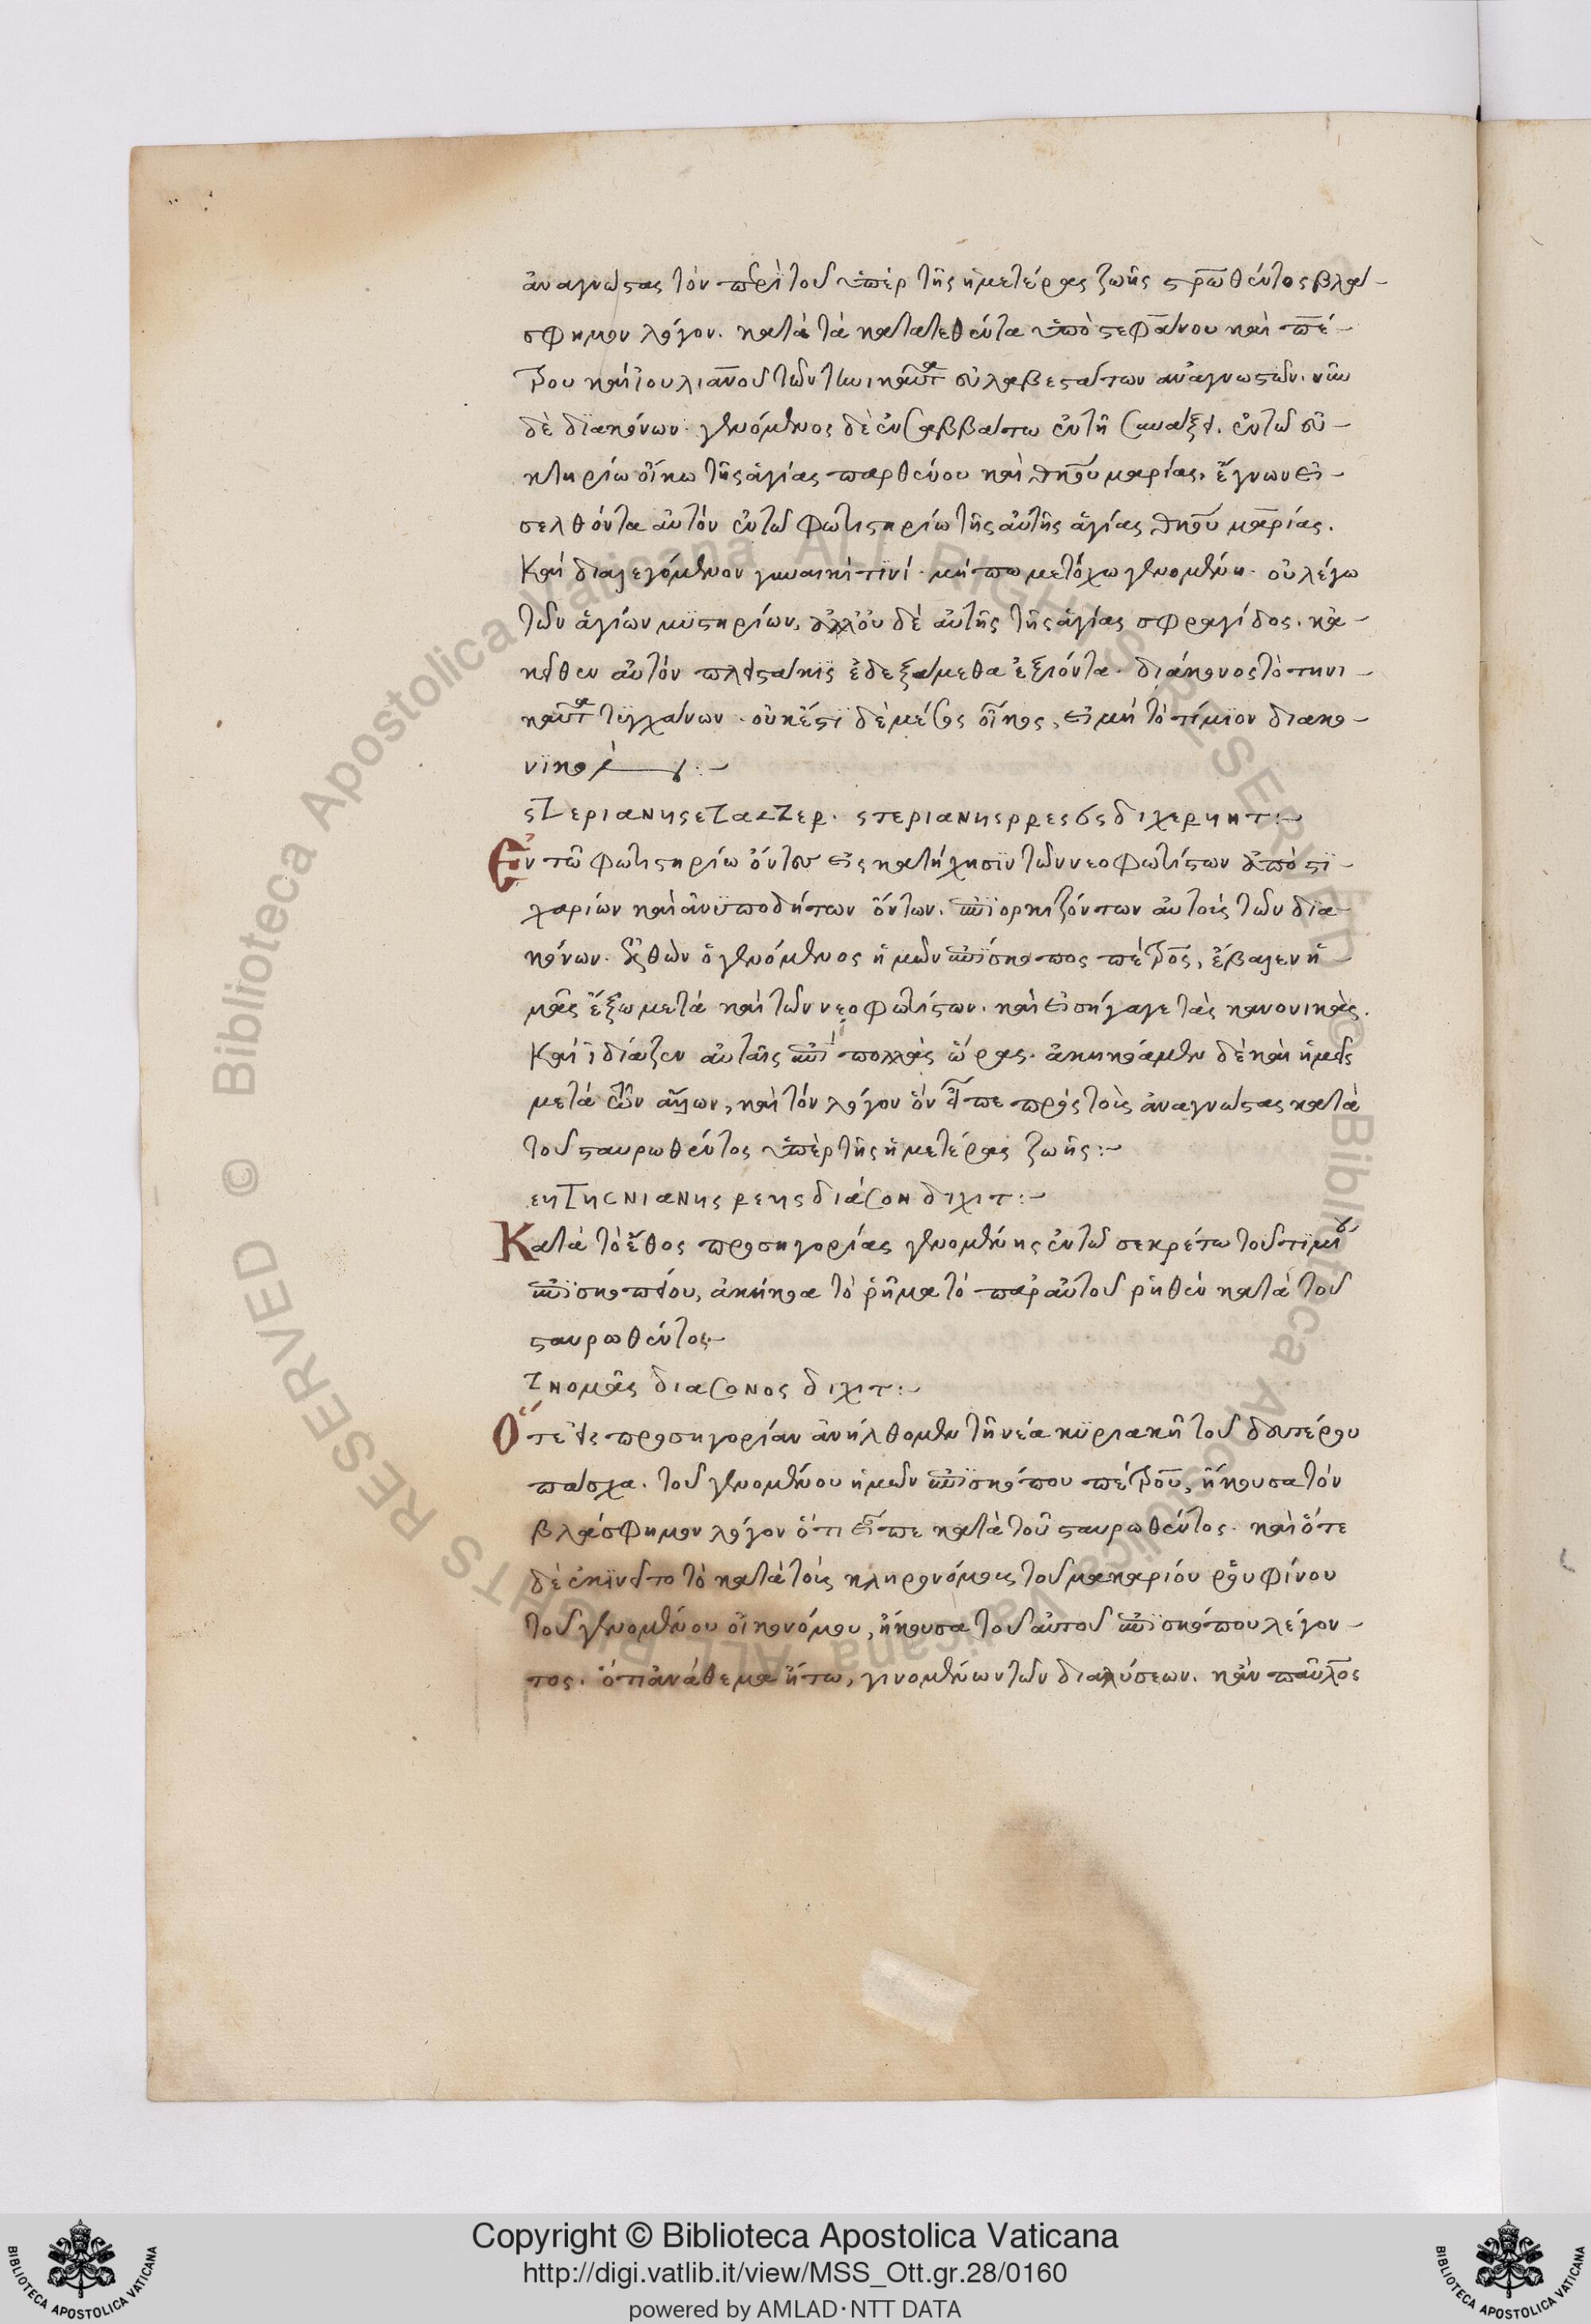 ἀναγνώστας τὸν περὶ τοῦ ὑπὲρ τῆς ἡμετέρας ζωῆς σταυρωθέντος βλά-
σφημον λόγον. κατὰ τὰ κατατεθέντα ὑπὸ στεφάνου καὶ πέ-
τρου καὶ ἰουλιανοῦ τῶν τηνικαῦτα εὐλαβεστάτων ἀναγνωστῶν. νῦν
δὲ διακόνων. γενόμενος δὲ ἐν σαββάτω ἐν τῆ συνάξει. ἐν τῶ εὐ-
κτηρίω οἴκω τῆς ἁγίας παρθένου καὶ θεοτόκου μαρίας, ἔγνων εἰ-
σελθόντα αὐτὸν ἐν τῶ φωτιστηρίω τῆς αὐτῆς ἁγίας θεοτόκου μαρίας.
Καὶ διαλεγόμενον γυναικὶ τινί. μήπω μετόχω γενομένη. οὐ λέγω
τῶν ἁγίων μυστηρίων, ἀλλ' οὐδὲ αὐτῆς τῆς ἁγίας σφραγίδος. κἀ-
κεῖθεν αὐτὸν πλειστάκις ἐδεξάμεθα ἐξιόντα. διάκονος τὸ τηνι-
καῦτα τυγχάνων. οὐκ ἔστι δὲ μέσος οἶκος, εἰ μὴ τὸ τίμιον διακο-
νικόν:-
Εν τῶ φωτιστηρίω ὄντων εἰς κατήχησιν τῶν νεοφωτίστων ἀπὸ στι-
χαρίων καὶ ἀνυποδήτων ὄντων. ἐπιορκιζόντων αὐτοὺς τῶν δια-
κόνων. ἐλθὼν ὁ γενόμενος ἡμῶν ἐπίσκοπος πέτρος, ἔβαλεν ἡ-
μᾶς ἔξω μετὰ καὶ τῶν νεοφωτίστων. καὶ εἰσήγαγε τὰς κανονικάς.
Καὶ ἰδίαζεν αὐταῖς ἐπὶ πολλὰς ὥρας. ἀκηκόαμεν δὲ καὶ ἡμεῖς
μετὰ τῶν ἄλλων, καὶ τὸν λόγον ὃν εἶπε πρὸς τοὺς ἀναγνώστας κατὰ
τοῦ σταυρωθέντος ὑπὲρ τῆς ἡμετέρας ζωῆς:-
Κατὰ τὸ ἔθος προσηγορίας γενομένης ἐν τῶ σεκρέτω τοῦ τιμίου
ἐπισκοπείου, ἀκήκοα τὸ ῥῆμα τὸ παρ' αὐτοῦ ῥηθὲν κατὰ τοῦ
σταυρωθέντος-
θωμᾶς διαconos διχιτ:-
Οτε εἰς προσηγορίαν ἀνήλθομεν τῆ νέα κυριακῆ τοῦ δευτέρου
πάσχα. τοῦ γενομένου ἡμῶν ἐπισκόπου πέτρου, ἤκουσα τὸν
βλάσφημον λόγον ὅτι εἶπε κατὰ τοῦ σταυρωθέντος. καὶ ὅτε
δὲ ἐκινεῖτο τὸ κατὰ τοὺς κληρονόμους τοῦ μακαρίου ῥουφίνου
τοῦ γενομένου οἰκονόμου, ἤκουσα τοῦ αὐτοῦ ἐπισκόπου λέγον-
τος. ὅτι ἀνάθεμα ἤτω, γινομένων τῶν διαλύσεων. κἂν παῦλος
Copyright © Biblioteca Apostolica Vaticana
http://digi.vatlib.it/view/MSS_Ott.gr.28/0160
powered by AMLAD·NTT DATA